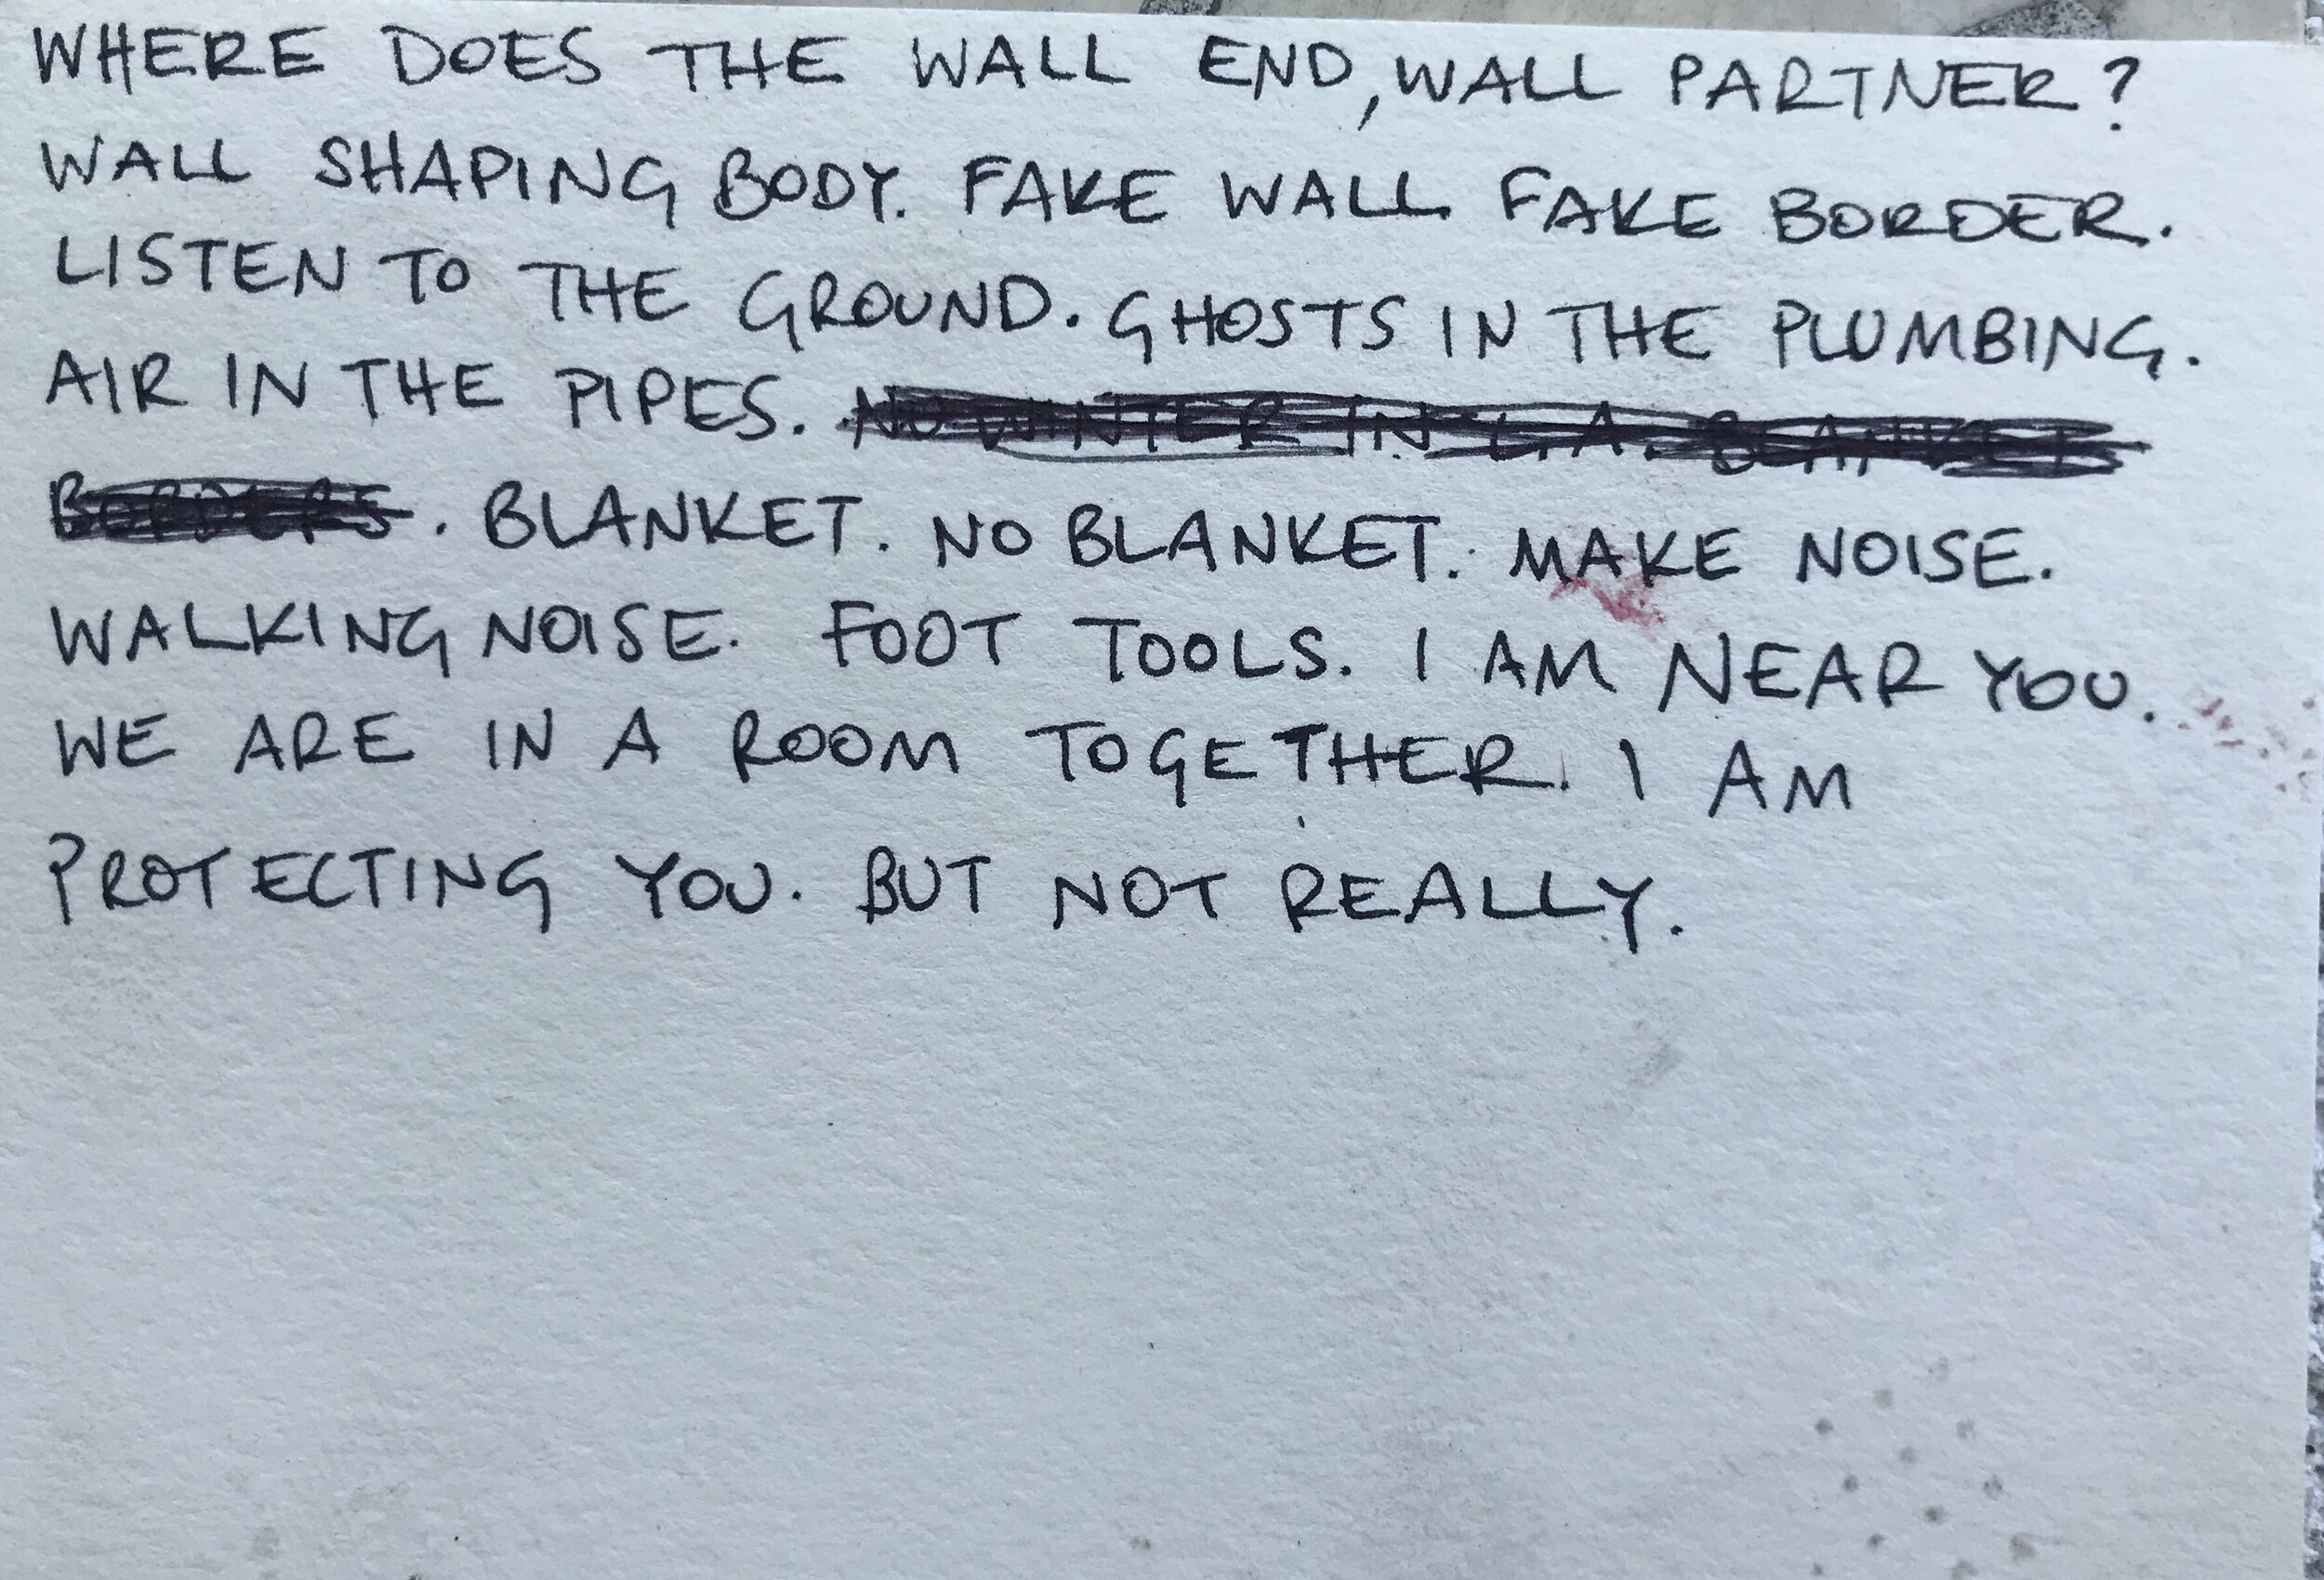 WHERE DOES THE WALL END, WALL PARTNER?
WALL SHAPING BODY. FAKE WALL FAKE BORDER.
LISTEN TO THE GROUND. GHOSTS IN THE PLUMBING.
AIR IN THE PIPES. NO WINTER IN L.A. BLANKET
BORDERS. BLANKET. NO BLANKET. MAKE NOISE.
WALKING NOISE. FOOT TOOLS. I AM NEAR YOU.
WE ARE IN A ROOM TOGETHER. I AM
PROTECTING YOU. BUT NOT REALLY.